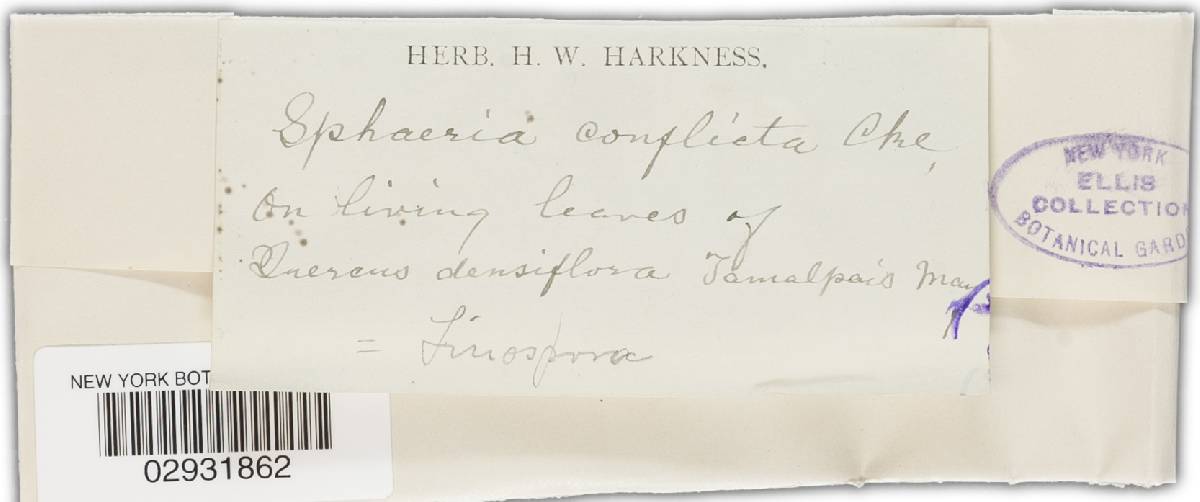 HERB. H. W. HARKNESS.
Sphaeria conflicta Cke,
On living leaves of
Quercus densiflora Tamalpais May
= Linospora
NEW YORK
ELLIS
COLLECTION
BOTANICAL GARD
NEW YORK BOT
02931862